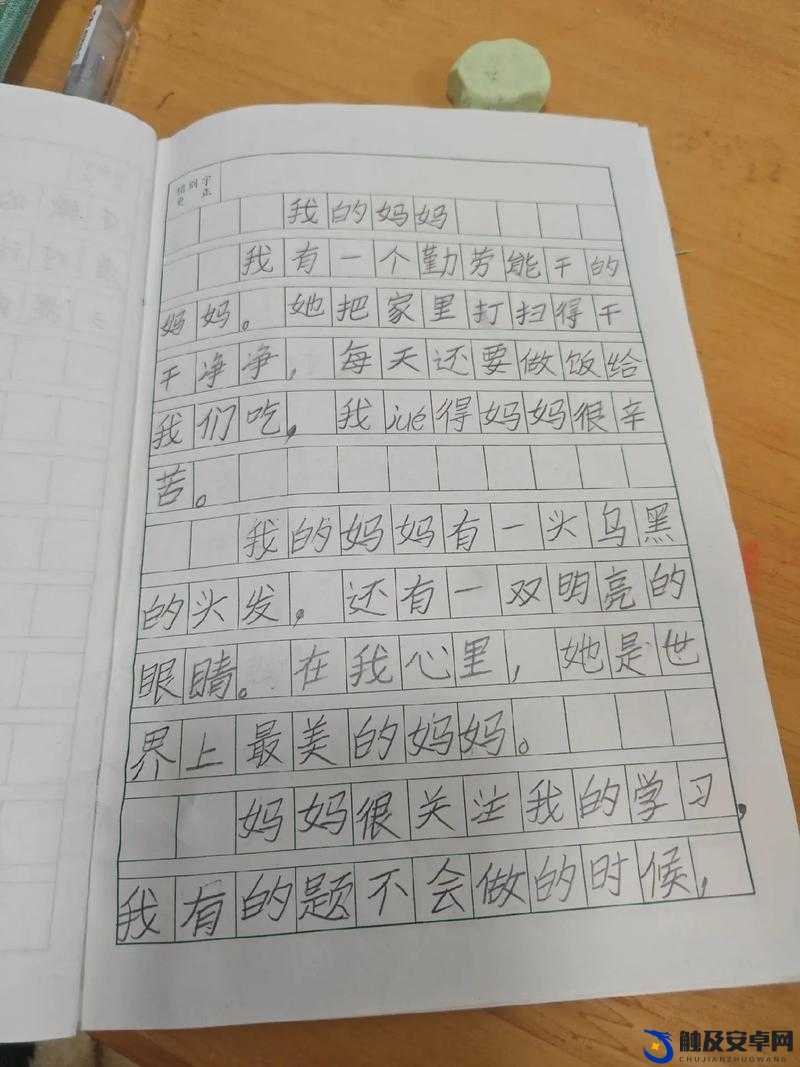 我的妈妈
我有一个勤劳能干的
妈妈。她把家里打扫得干
干净净，每天还要做饭给
我们吃，我jué得妈妈很辛
苦。
我的妈妈有一头乌黑
的头发，还有一双明亮的
眼睛。在我心里，她是世
界上最美的妈妈。
妈妈很关注我的学习，
我有的题不会做的时候，
触及安卓网
CHUJIANZHUOWANG